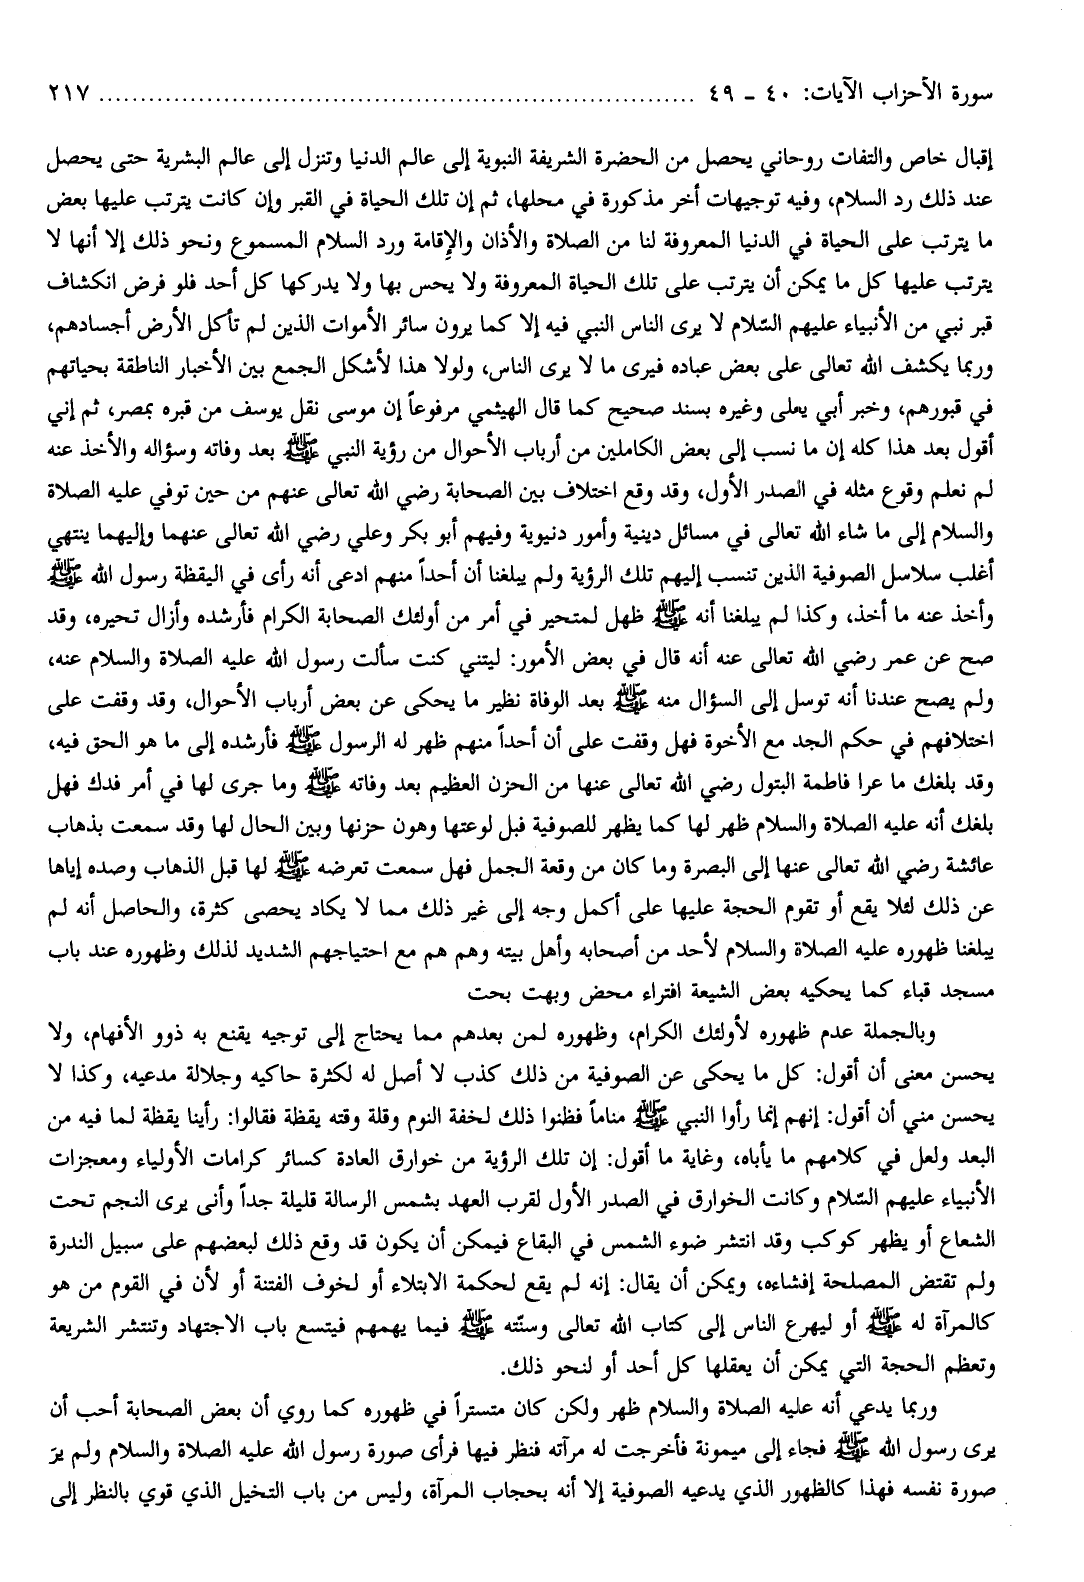 سورة الأحزاب الآيات: ٤٠ ـ ٤٩ ........................................................................ ٢١٧
إقبال خاص والتفات روحاني يحصل من الحضرة الشريفة النبوية إلى عالم الدنيا وتنزل إلى عالم البشرية حتى يحصل
عند ذلك رد السلام، وفيه توجيهات أخر مذكورة في محلها، ثم إن تلك الحياة في القبر وإن كانت يترتب عليها بعض
ما يترتب على الحياة في الدنيا المعروفة لنا من الصلاة والأذان والإقامة ورد السلام المسموع ونحو ذلك إلا أنها لا
يترتب عليها كل ما يمكن أن يترتب على تلك الحياة المعروفة ولا يحس بها ولا يدركها كل أحد فلو فرض انكشاف
قبر نبي من الأنبياء عليهم السّلام لا يرى الناس النبي فيه إلا كما يرون سائر الأموات الذين لم تأكل الأرض أجسادهم،
وربما يكشف الله تعالى على بعض عباده فيرى ما لا يرى الناس، ولولا هذا لأشكل الجمع بين الأخبار الناطقة بحياتهم
في قبورهم، وخبر أبي يعلى وغيره بسند صحيح كما قال الهيثمي مرفوعاً إن موسى نقل يوسف من قبره بمصر، ثم إني
أقول بعد هذا كله إن ما نسب إلى بعض الكاملين من أرباب الأحوال من رؤية النبي ﷺ بعد وفاته وسؤاله والأخذ عنه
لم نعلم وقوع مثله في الصدر الأول، وقد وقع اختلاف بين الصحابة رضي الله تعالى عنهم من حين توفي عليه الصلاة
والسلام إلى ما شاء الله تعالى في مسائل دينية وأمور دنيوية وفيهم أبو بكر وعلي رضي الله تعالى عنهما وإليهما ينتهي
أغلب سلاسل الصوفية الذين تنسب إليهم تلك الرؤية ولم يبلغنا أن أحداً منهم ادعى أنه رأى في اليقظة رسول الله ﷺ
وأخذ عنه ما أخذ، وكذا لم يبلغنا أنه ﷺ ظهل لمتحير في أمر من أولئك الصحابة الكرام فأرشده وأزال تحيره، وقد
صح عن عمر رضي الله تعالى عنه أنه قال في بعض الأمور: ليتني كنت سألت رسول الله عليه الصلاة والسلام عنه،
ولم يصح عندنا أنه توسل إلى السؤال منه ﷺ بعد الوفاة نظير ما يحكى عن بعض أرباب الأحوال، وقد وقفت على
اختلافهم في حكم الجد مع الأخوة فهل وقفت على أن أحداً منهم ظهر له الرسول ﷺ فأرشده إلى ما هو الحق فيه،
وقد بلغك ما عرا فاطمة البتول رضي الله تعالى عنها من الحزن العظيم بعد وفاته ﷺ وما جرى لها في أمر فدك فهل
بلغك أنه عليه الصلاة والسلام ظهر لها كما يظهر للصوفية فبل لوعتها وهون حزنها وبين الحال لها وقد سمعت بذهاب
عائشة رضي الله تعالى عنها إلى البصرة وما كان من وقعة الجمل فهل سمعت تعرضه ﷺ لها قبل الذهاب وصده إياها
عن ذلك لئلا يقع أو تقوم الحجة عليها على أكمل وجه إلى غير ذلك مما لا يكاد يحصى كثرة، والحاصل أنه لم
يبلغنا ظهوره عليه الصلاة والسلام لأحد من أصحابه وأهل بيته وهم هم مع احتياجهم الشديد لذلك وظهوره عند باب
مسجد قباء كما يحكيه بعض الشيعة افتراء محض وبهت بحت
وبالجملة عدم ظهوره لأولئك الكرام، وظهوره لمن بعدهم مما يحتاج إلى توجيه يقنع به ذوو الأفهام، ولا
يحسن معنى أن أقول: كل ما يحكى عن الصوفية من ذلك كذب لا أصل له لكثرة حاكيه وجلالة مدعيه، وكذا لا
يحسن مني أن أقول: إنهم إنما رأوا النبي ﷺ مناماً فظنوا ذلك لخفة النوم وقلة وقته يقظة فقالوا: رأينا يقظة لما فيه من
البعد ولعل في كلامهم ما يأباه، وغاية ما أقول: إن تلك الرؤية من خوارق العادة كسائر كرامات الأولياء ومعجزات
الأنبياء عليهم السّلام وكانت الخوارق في الصدر الأول لقرب العهد بشمس الرسالة قليلة جداً وأنى يرى النجم تحت
الشعاع أو يظهر كوكب وقد انتشر ضوء الشمس في البقاع فيمكن أن يكون قد وقع ذلك لبعضهم على سبيل الندرة
ولم تقتض المصلحة إفشاءه، ويمكن أن يقال: إنه لم يقع لحكمة الابتلاء أو لخوف الفتنة أو لأن في القوم من هو
كالمرآة له ﷺ أو ليهرع الناس إلى كتاب الله تعالى وسنّته ﷺ فيما يهمهم فيتسع باب الاجتهاد وتنتشر الشريعة
وتعظم الحجة التي يمكن أن يعقلها كل أحد أو لنحو ذلك.
وربما يدعي أنه عليه الصلاة والسلام ظهر ولكن كان متستراً في ظهوره كما روي أن بعض الصحابة أحب أن
يرى رسول الله ﷺ فجاء إلى ميمونة فأخرجت له مرآته فنظر فيها فرأى صورة رسول الله عليه الصلاة والسلام ولم يرَ
صورة نفسه فهذا كالظهور الذي يدعيه الصوفية إلا أنه بحجاب المرآة، وليس من باب التخيل الذي قوي بالنظر إلى